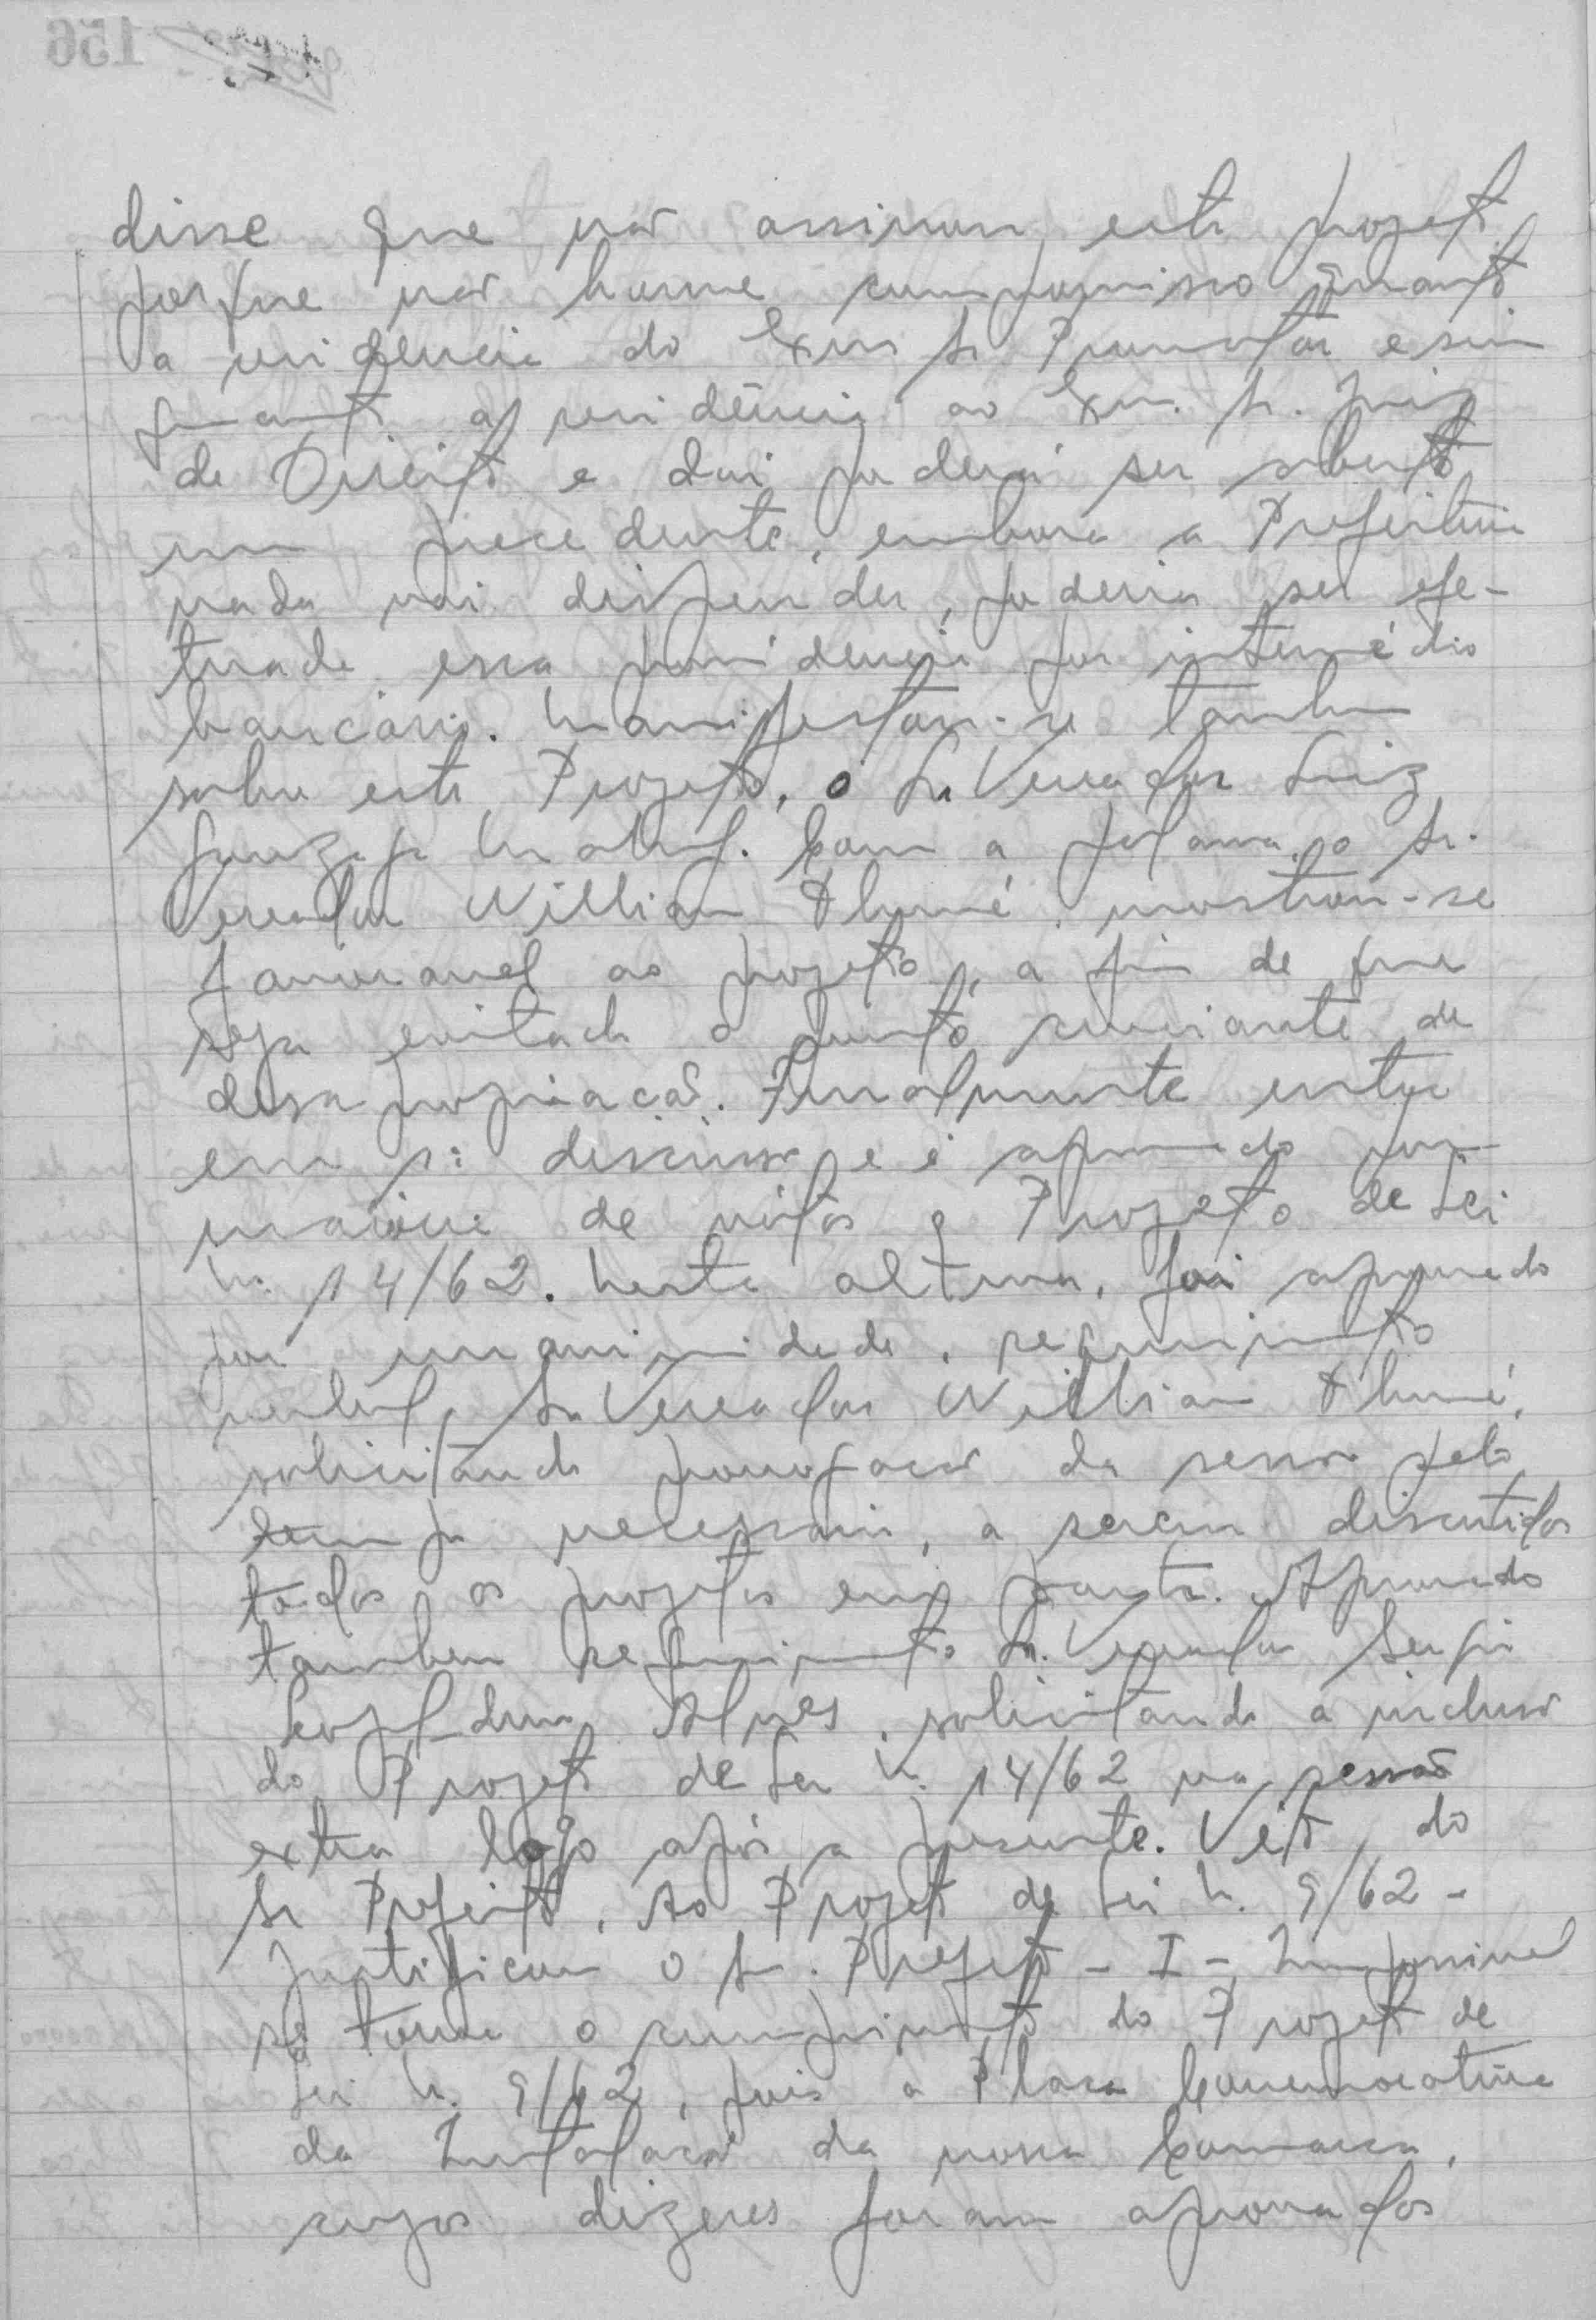 disse que não assinou este projeto
porque não houve compromisso quanto
a residencia do Exmo Sr Promotor e sim
quanto a residência ao Exm. Sr. Juiz
de Direito e dai poderá ser aberto
um precedente, embora a Prefeitura
nada vai dispender, poderia ser efe-
tuada essa providencia por intermédio
bancário. Manifestou-se tambem
sobre este Projeto, o Sr. Vereador Luiz
Gonzaga. Com a palavra, o Sr.
Vereador Willian Thomé, mostrou-se
favoravel ao projeto, a fim de que
seja evitado o ponto cruciante de
desapropriacão. Finalmente entra
em 1ª discussão e é aprovado por
maioria de votos o Projeto de Lei
N. 14/62. Nesta altura, foi aprovado
por unanimidade, requerimento
verbal, Sr Vereador Willian Thomé,
solicitando prorrogacão da sessão pelo
tempo necessario, a serem discutidos
todos os projetos em pauta. Aprovado
tambem requerimento Sr. Vereador Sergio
Alves, solicitando a inclusão
do Projeto de Lei N. 14/62 na sessão
extra logo após a presente. Veto do
Sr Prefeito, Ao Projeto de Lei N. 9/62 -
Justificou o Sr. Prefeito - I - Impossivel
se torna o cumprimento do Projeto de
Lei N. 9/62, pois a Placa Comemorativa
da Instalacão da nossa Comarca,
cujos dizeres foram aprovados